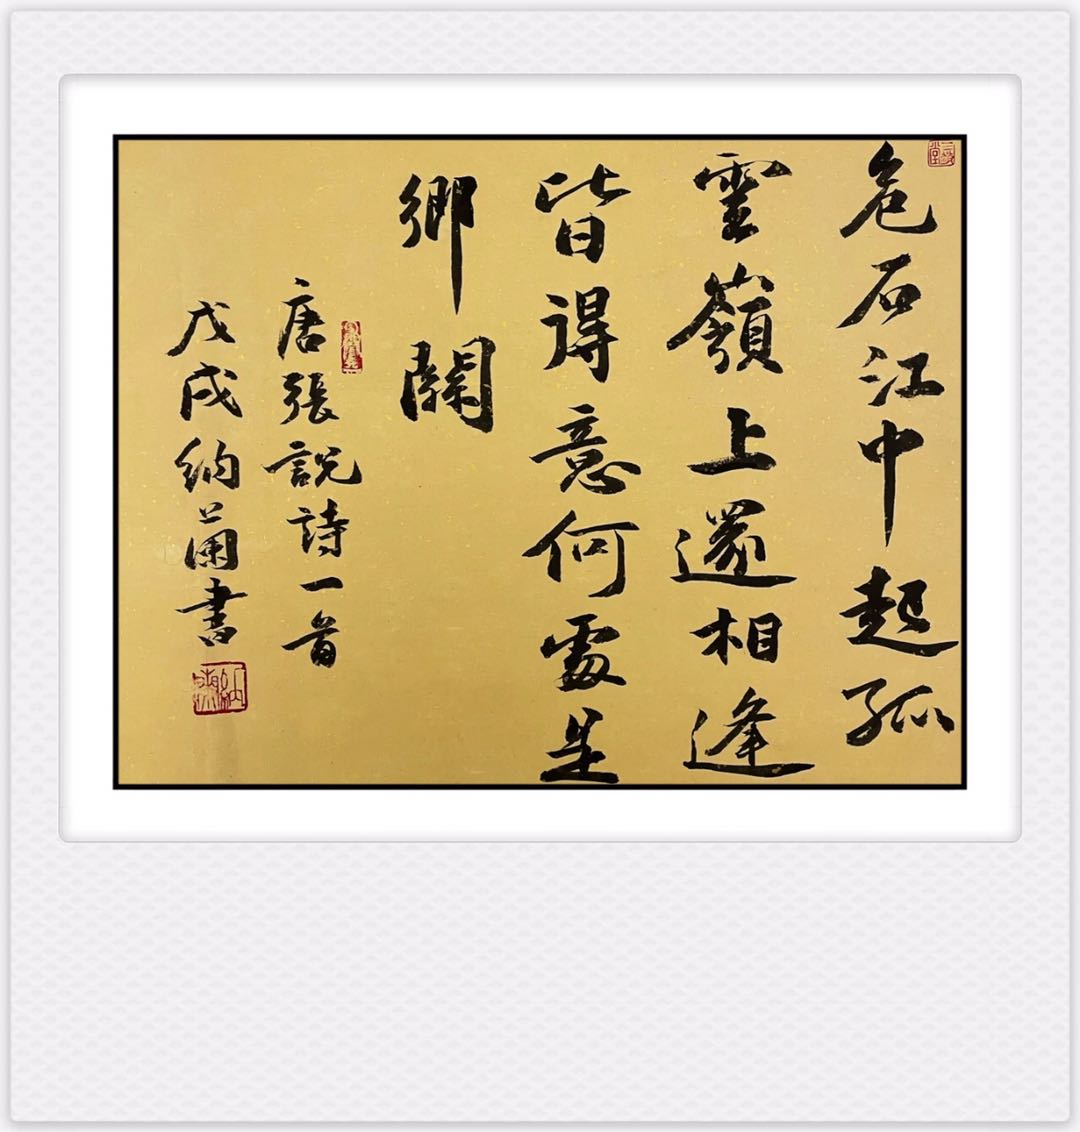 危石江中起孤
雲嶺上還相逢
皆得意何處是
鄉關
唐張說詩一首
戊戌納蘭書